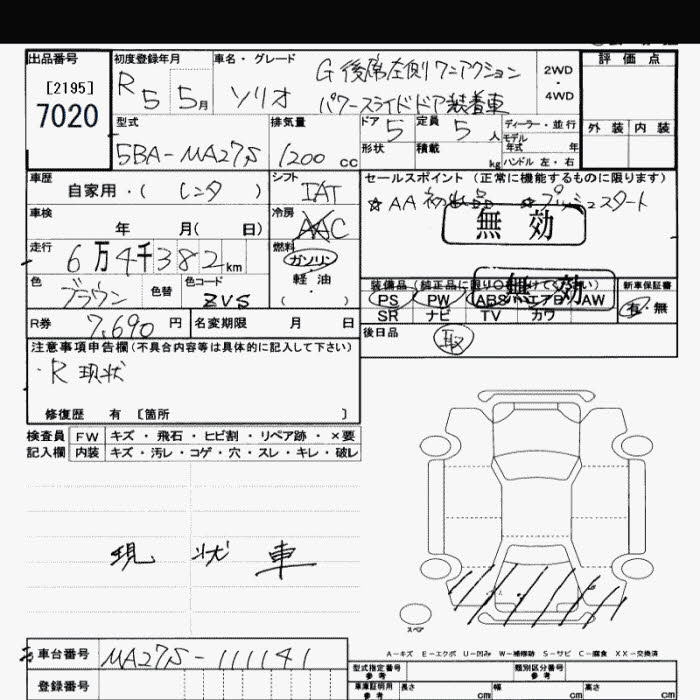 出品番号
[2195]
7020
初度登録年月
R5 5月
車名・グレード
ソリオ
G 後席左側ワンアクション
パワースライドドア装着車
2WD
・
4WD
評価点
外装 内装
型式
5BA-MA27S
排気量
1200 cc
ドア 5
定員 5 人
形状
積載 kg
ディーラー・並行
モデル
年式 年
ハンドル 左・右
車歴
自家用・( レンタ )
シフト
IAT
車検
年 月( 日)
冷房
AAC
走行
6万4千382km
燃料
ガソリン
軽油
( )
色
ブラウン
色替
色コード
ZVS
R券
7,690円
名変期限 月 日
セールスポイント(正常に機能するものに限ります)
☆AA初出品 ☆プッシュスタート
無効
無効
PS PW ABS エアB AW
SR ナビ TV カワ
新車保証書
有・無
後日品
取
注意事項申告欄(不具合内容等は具体的に記入して下さい)
・R 現状
修復歴 有 [箇所 ]
検査員 FW キズ・飛石・ヒビ割・リペア跡・×要
記入欄 内装 キズ・汚レ・コゲ・穴・スレ・キレ・破レ
現状車
スペア
A-キズ E-エクボ U-凹み W-補修跡 S-サビ C-腐食 XX-交換済
車台番号
MA27S-111141
登録番号
型式指定番号
参考
類別区分番号
参考
車庫証明用
参考
長さ cm 幅 cm 高さ cm